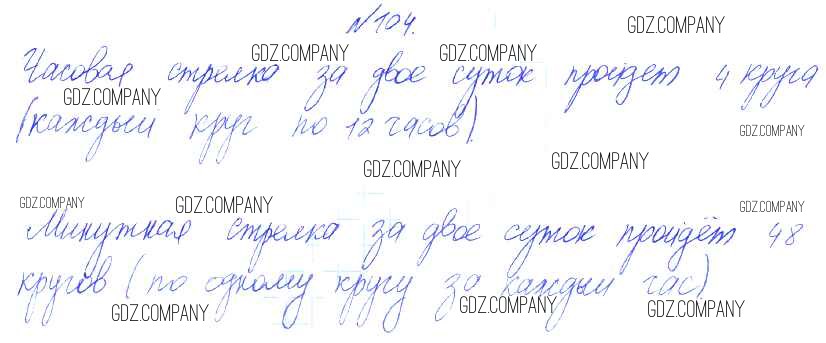 №104.
Часовая стрелка за двое суток пройдет 4 круга
(каждый круг по 12 часов).
Минутная стрелка за двое суток пройдёт 48
кругов (по одному кругу за каждый час)
GDZ.COMPANY
GDZ.COMPANY
GDZ.COMPANY
GDZ.COMPANY
GDZ.COMPANY
GDZ.COMPANY
GDZ.COMPANY
GDZ.COMPANY
GDZ.COMPANY
GDZ.COMPANY
GDZ.COMPANY
GDZ.COMPANY
GDZ.COMPANY